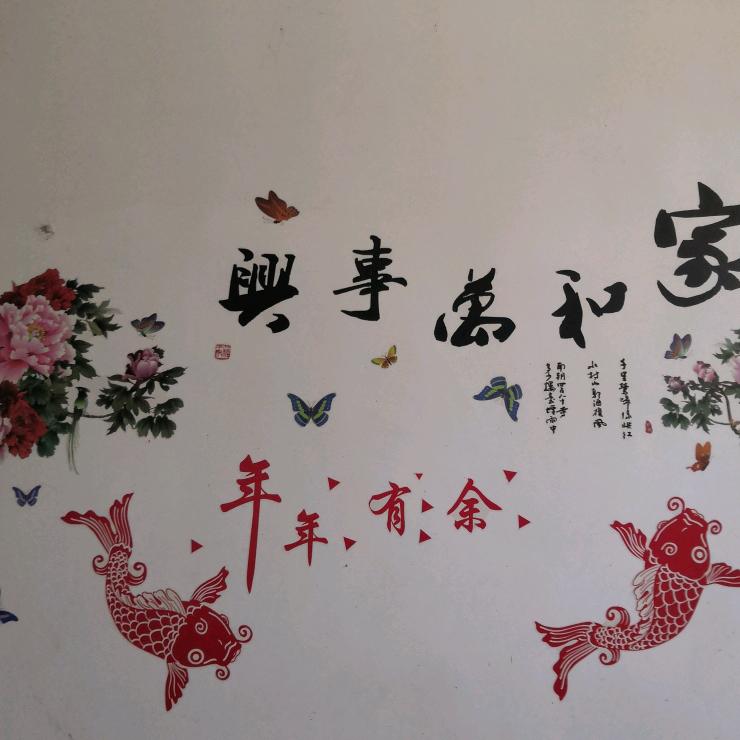 家和萬事興
千里鶯啼綠映紅
水村山郭酒旗風
南朝四百八十寺
多少樓臺煙雨中
年年有余